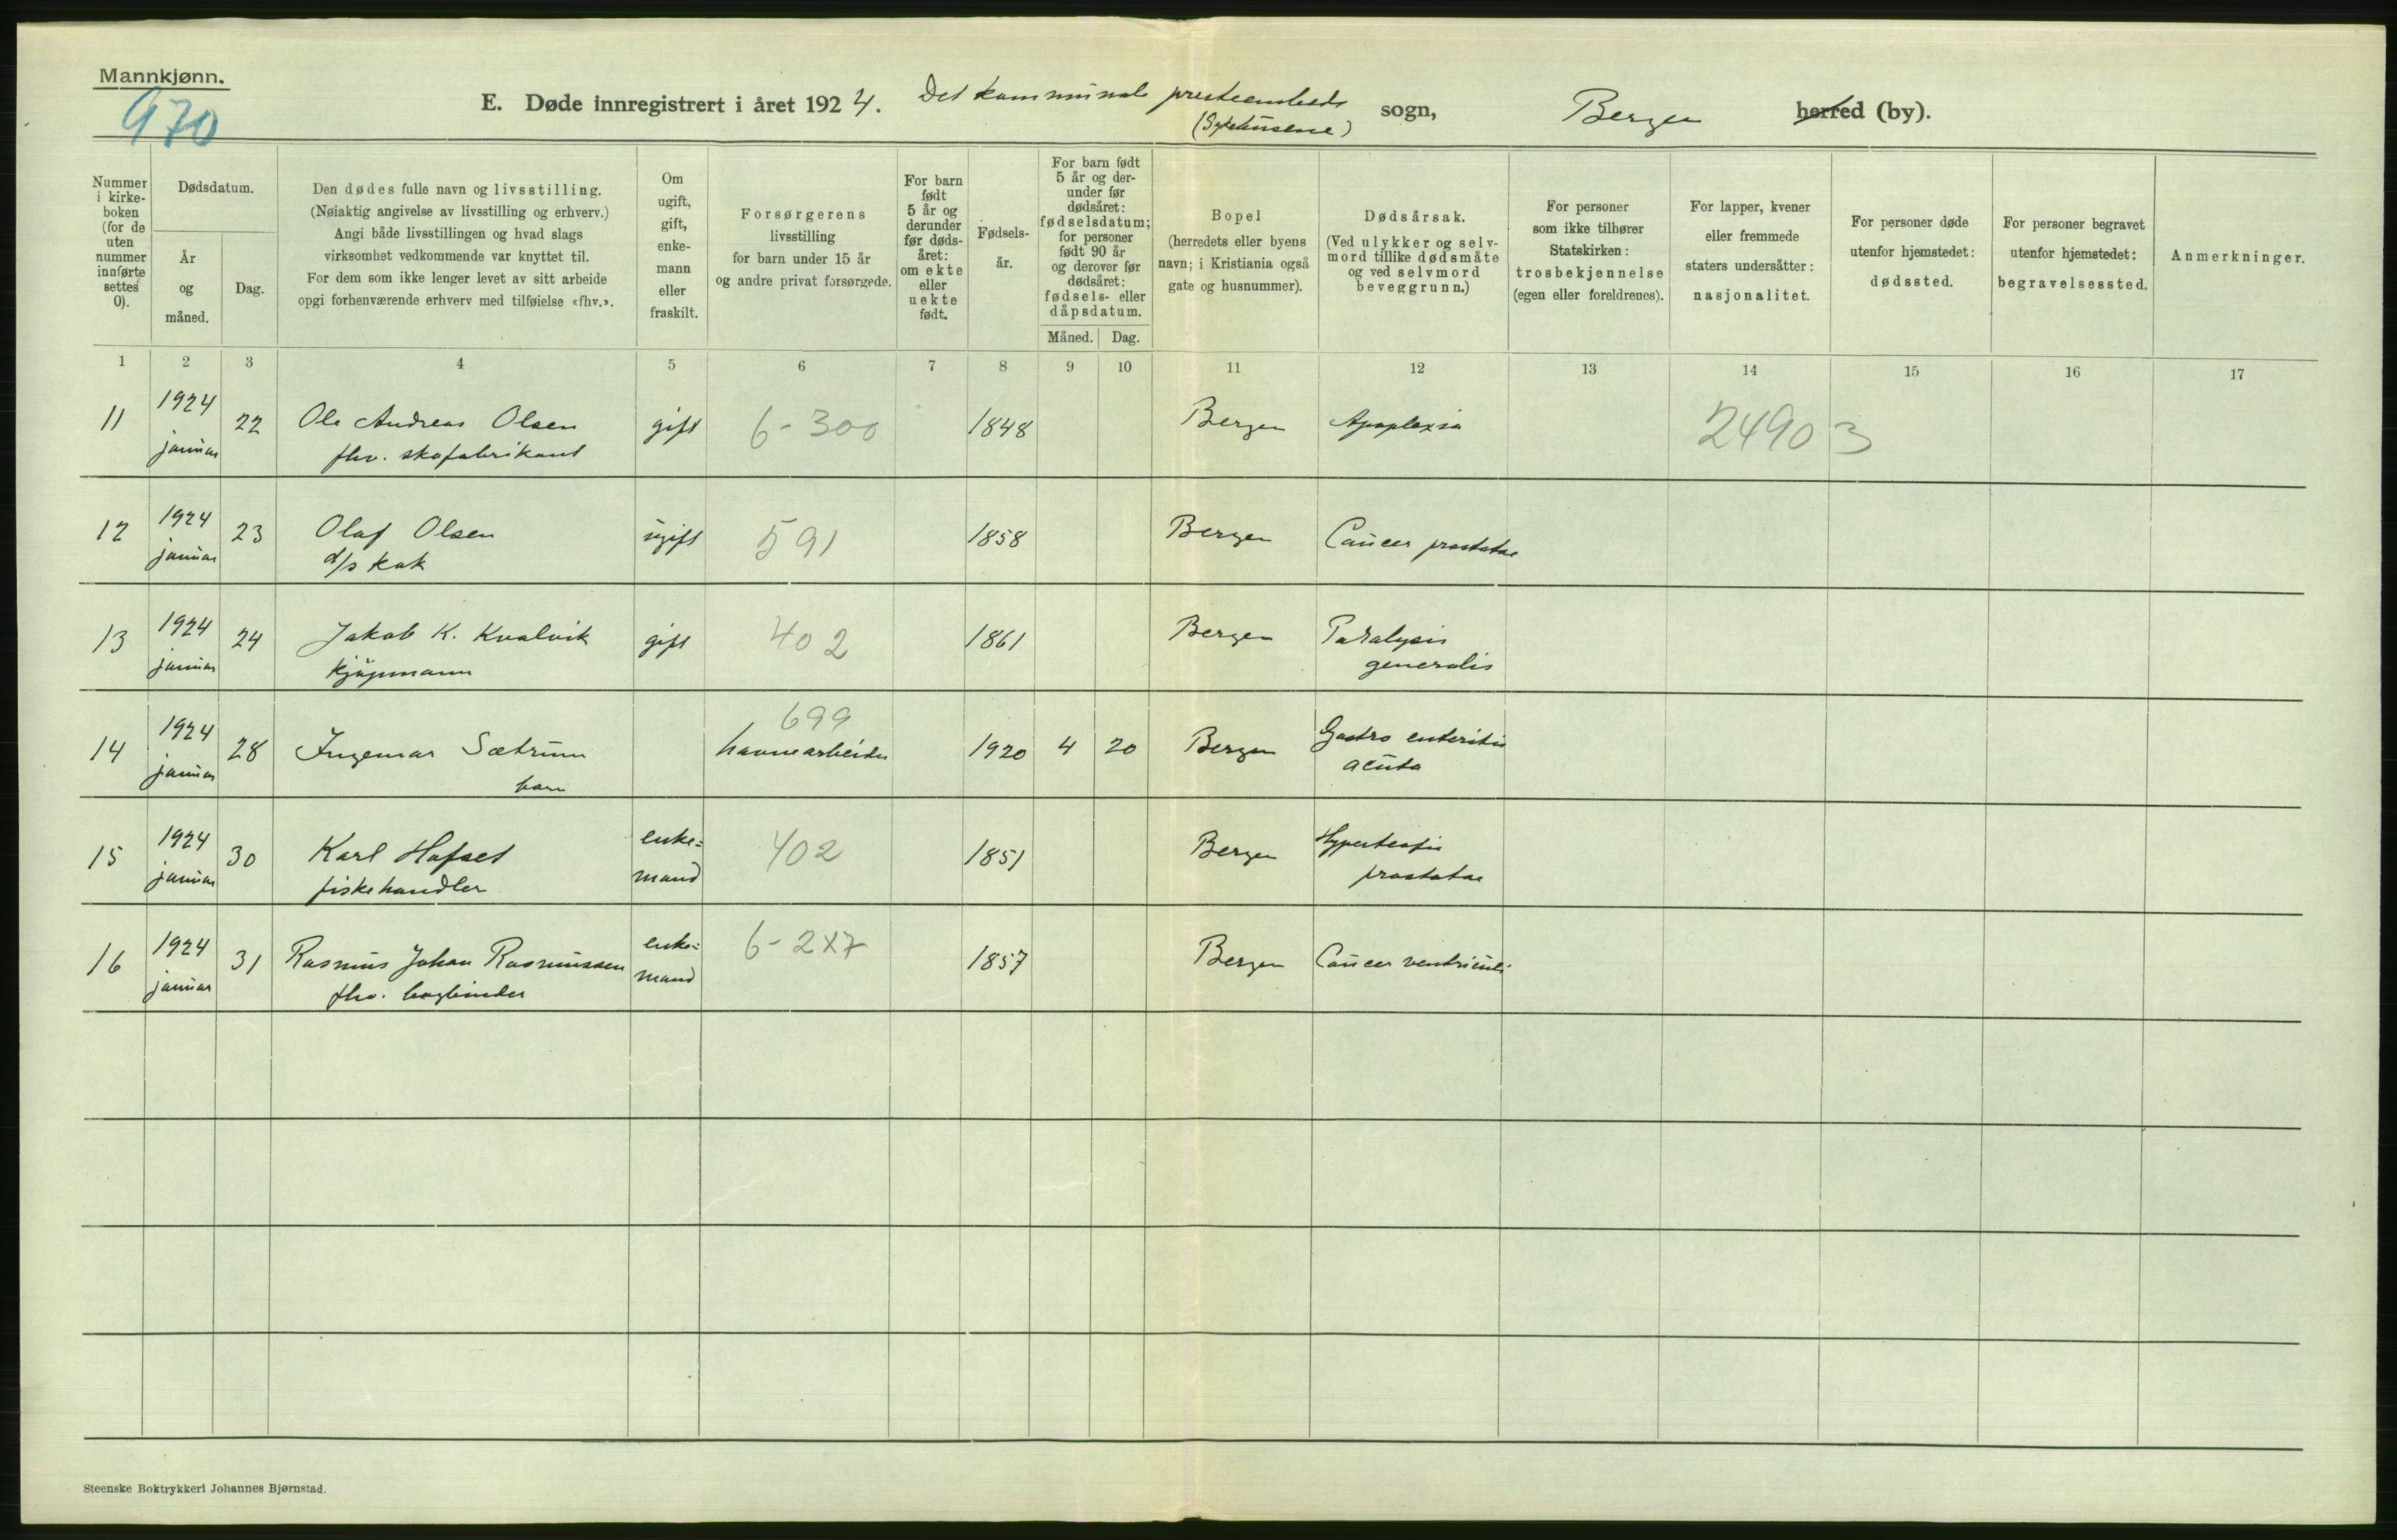 Mannkjønn.
970
E. Døde innregistrert i året 1924. Det kommunale presteembede (Sykehusene) sogn, Bergen herred (by).
Nummer i kirke-boken (for de uten nummer innførte settes 0).
Dødsdatum.
År og måned.
Dag.
Den dødes fulle navn og livsstilling.
(Nøiaktig angivelse av livsstilling og erhverv.)
Angi både livsstillingen og hvad slags
virksomhet vedkommende var knyttet til.
For dem som ikke lenger levet av sitt arbeide
opgi forhenværende erhverv med tilføielse «fhv.».
Om ugift, gift, enke-mann eller fraskilt.
Forsørgerens
livsstilling
for barn under 15 år
og andre privat forsørgede.
For barn født 5 år og derunder før døds-året: om ekte eller uekte født.
Fødsels-år.
For barn født 5 år og der-under før dødsåret: fødselsdatum; for personer født 90 år og derover før dødsåret: fødsels- eller dåpsdatum.
Måned. Dag.
Bopel
(herredets eller byens
navn; i Kristiania også
gate og husnummer).
Dødsårsak.
(Ved ulykker og selv-
mord tillike dødsmåte
og ved selvmord
beveggrunn.)
For personer
som ikke tilhører
Statskirken:
trosbekjennelse
(egen eller foreldrenes).
For lapper, kvener
eller fremmede
staters undersåtter:
nasjonalitet.
For personer døde
utenfor hjemstedet:
dødssted.
For personer begravet
utenfor hjemstedet:
begravelsessted.
Anmerkninger.
1 2 3 4 5 6 7 8 9 10 11 12 13 14 15 16 17
11 1924 januar 22 Ole Andreas Olsen gift 6-300 1848 Bergen Apoplexia 24903
fhv. skofabrikant
12 1924 januar 23 Olaf Olsen ugift 591 1858 Bergen Cancer prostatae
d/s kok
13 1924 januar 24 Jakob K. Kvalvik gift 402 1861 Bergen Paralysis
kjøpmann generalis
699
14 1924 januar 28 Ingemar Sætrum havnearbeider 1920 4 20 Bergen Gastro enteritis
barn acuta
15 1924 januar 30 Karl Hofset enke= 402 1851 Bergen Hypertrofia
fiskehandler mand prostatae
16 1924 januar 31 Rasmus Johan Rasmussen enke= 6-2X7 1857 Bergen Cancer ventriculi
fhv. bogbinder mand
Steenske Boktrykkeri Johannes Bjørnstad.